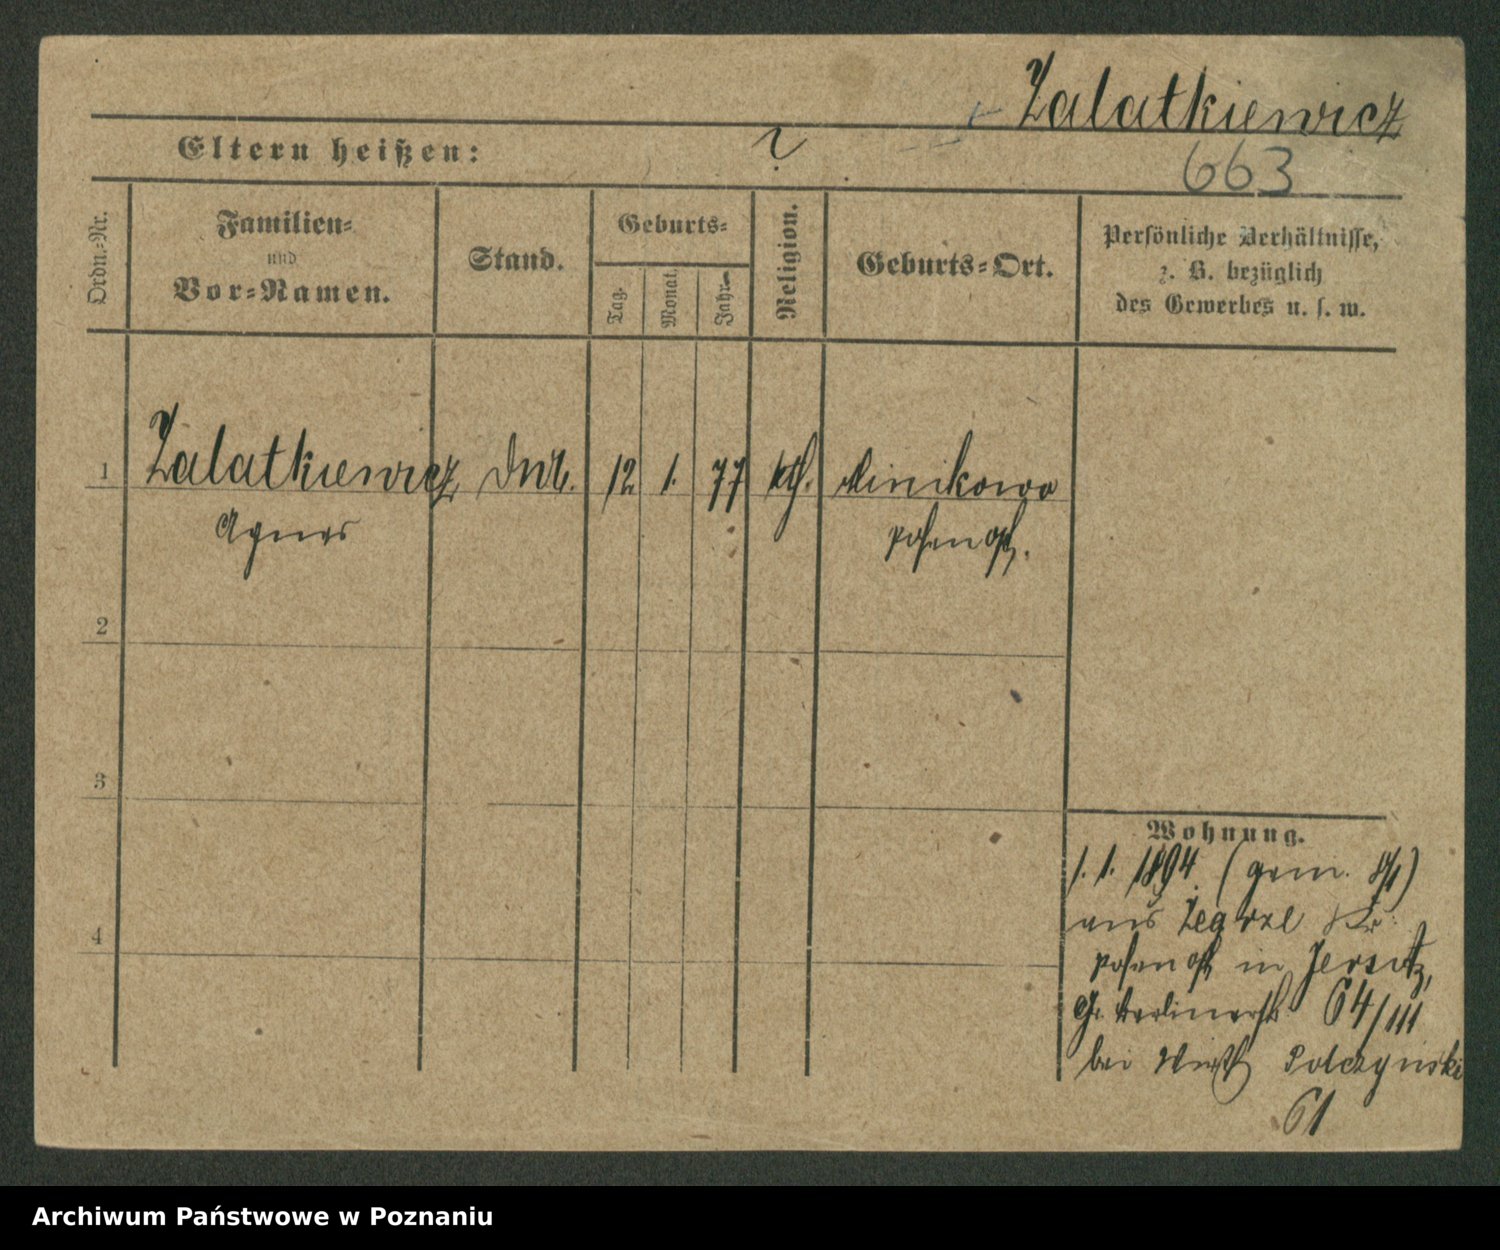 Zalatkiewicz
Eltern heißen: ?
663
Ordn.-Nr.
Familien-
und
Vor-Namen.
Stand.
Geburts-
Tag.
Monat.
Jahr.
Religion.
Geburts-Ort.
Persönliche Verhältnisse,
z. B. bezüglich
des Gewerbes u. s. w.
1 Zalatkiewicz 12 1. 77 kth. Minikowo
Agnes Posen Ost.
2
3
4
Wohnung.
1. 1. 1894. (gem. 8/1)
aus Zegrze Kr.
Posen Ost in Jersitz,
Gr. Berlinerstr. 64/III
bei Wirth Polczynski
61
Archiwum Państwowe w Poznaniu